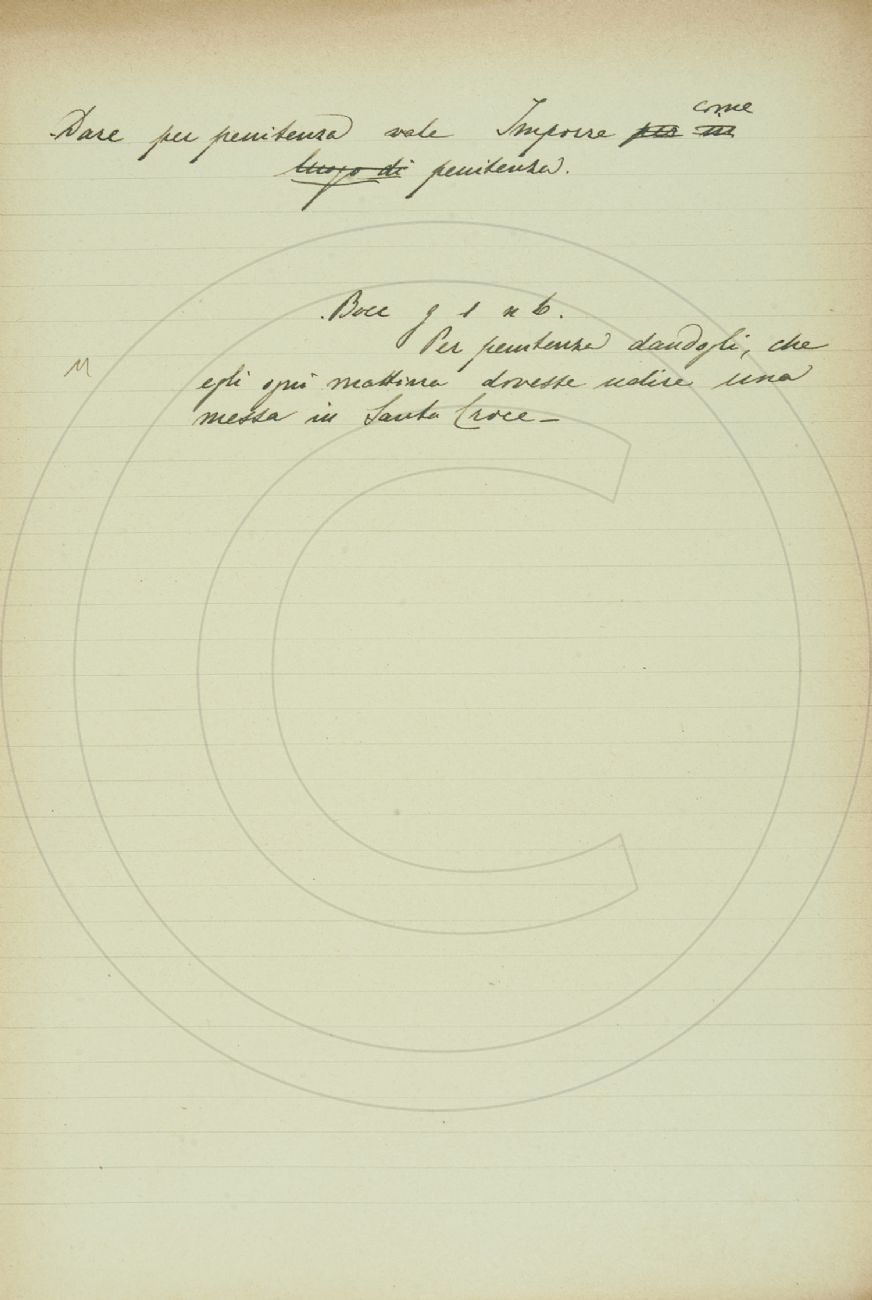 Dare per penitenza vale Imporre ~~per~~ ~~in~~ come
~~luogo di~~ penitenza.
Bocc g 1 n 6.
Per penitenza dandogli, che
egli ogni mattina dovesse udire una
messa in Santa Croce_
M